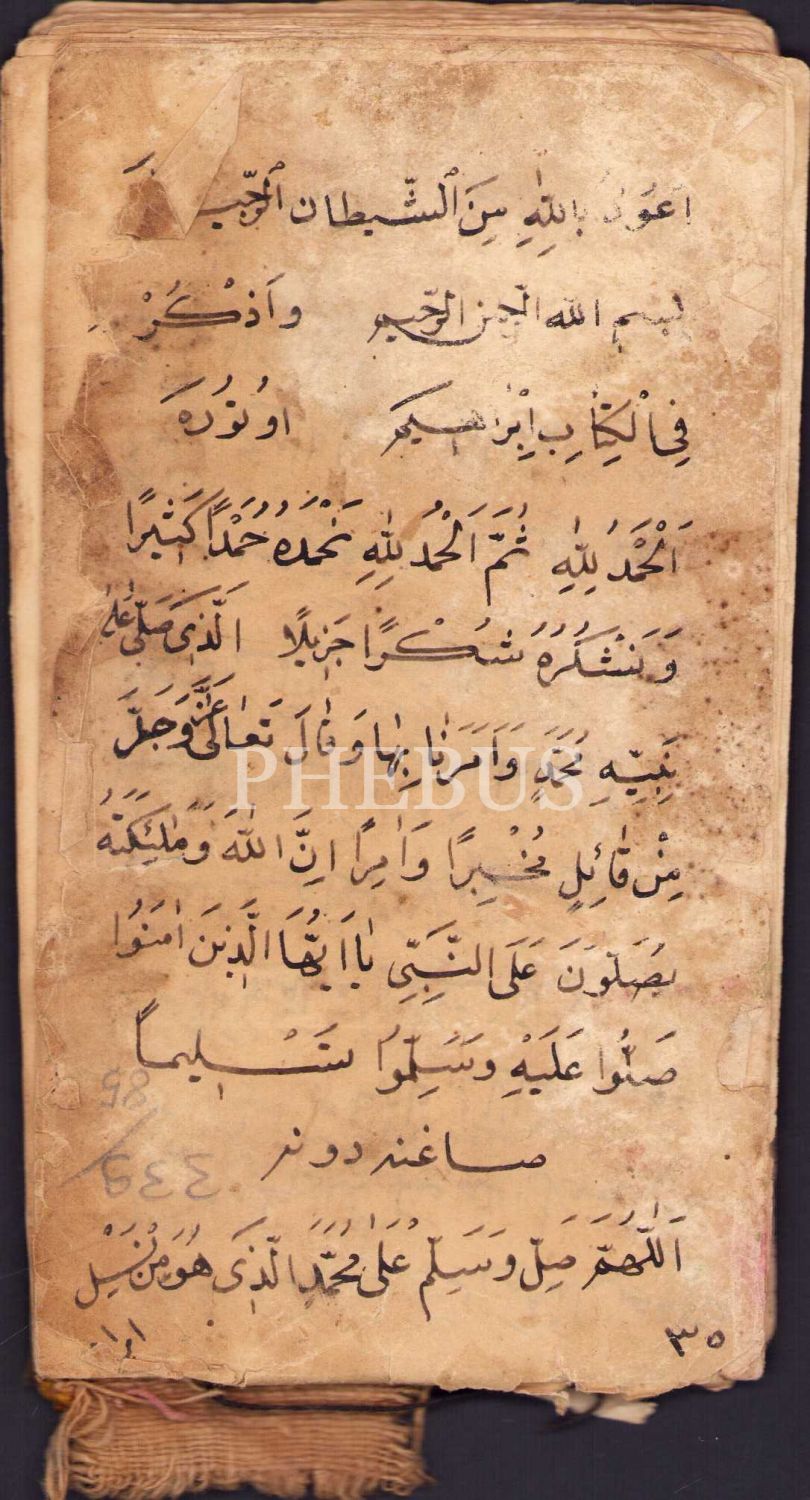 اَعُوذُ بِاللّٰهِ مِنَ الشَّيطان الرَّجيم
بسم الله الرّحمن الرّحيم وَاَذْكُرْ
فِي الْكِتَابِ اِبْرَاهيم اوتوره
اَلْحَمْدُ لِلّٰهِ ثُمَّ اَلْحَمْدُ لِلّٰهِ نَحْمَدُهُ حَمْدًا كَثِيرًا
وَنَشْكُرُهُ شُكْرًا جَزِيلًا الَّذِى صَلَّى عَلَى
نَبِيِّهِ مُحَمَّدٍ وَاَمَرَنَا بِهَا وَقَالَ تَعَالَى عَزَّ وَجَلَّ
مِنْ قَائِلٍ مُخْبِرًا وَاٰمِرًا اِنَّ اللّٰهَ وَمَلٰئِكَتَهُ
يُصَلُّونَ عَلَى النَّبِىِّ يَا اَيُّهَا الَّذِينَ اٰمَنُوا
صَلُّوا عَلَيْهِ وَسَلِّمُوا تَسْلِيمًا
صاغنه دونه
اَللّٰهُمَّ صَلِّ وَسَلِّمْ عَلَى مُحَمَّدٍ الَّذِى هُوَ مِنْ نَسْلِ
٣٥
PHEBUS